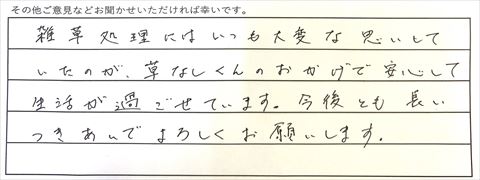 その他ご意見などお聞かせいただければ幸いです。
雑草処理にはいつも大変な思いして
いたのが、草なしくんのおかげで安心して
生活が過ごせています。今後とも長い
つきあいでよろしくお願いします。